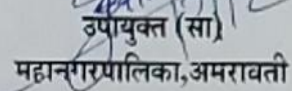 उपायुक्त (सा)
महानगरपालिका,अमरावती